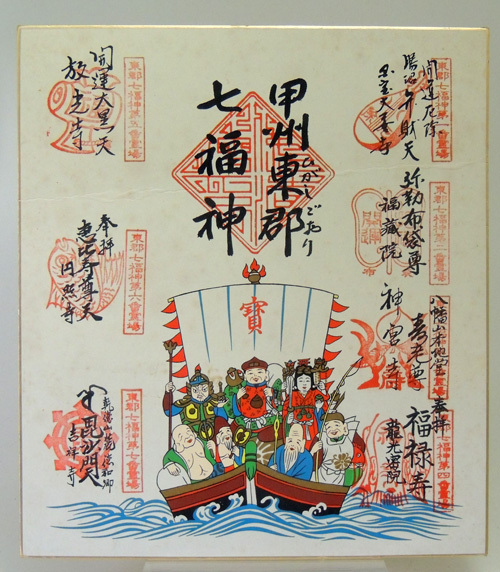 甲州東郡
ひがしごおり
七福神
開運厄除
弁財天
天善寺
東郡七福神第二番霊場
弥勒布袋尊
福蔵院
八幡山本地堂
寿老尊
神宮寺
東郡七福神第四番霊場
奉拝
福禄寿
龍光院
東郡七福神第五番霊場
開運大黒天
放光寺
東郡七福神第六番霊場
奉拝
恵比寿尊天
円照寺
東郡七福神第七番霊場
毘沙門天
吉祥寺
寶